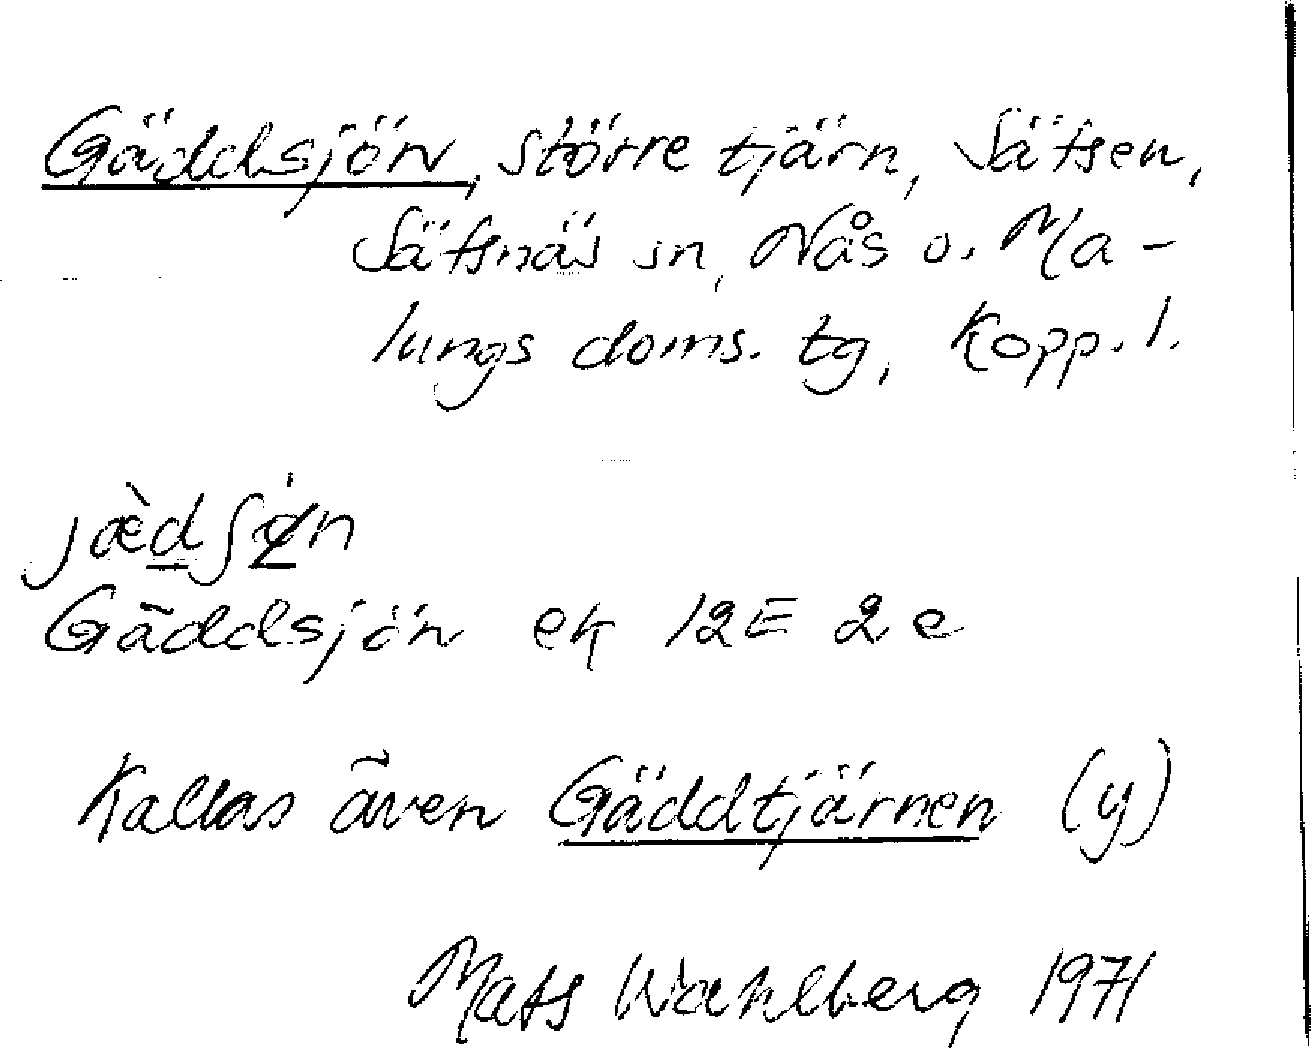 Gäddsjön, större tjärn, Säfsen,
Säfsnäs sn, Nås o. Ma-
lungs doms. tg, Kopp. l.
Gäddsjön ek 12E 2e
Kallas även Gäddtjärnen (y)
Mats Wahlberg 1971